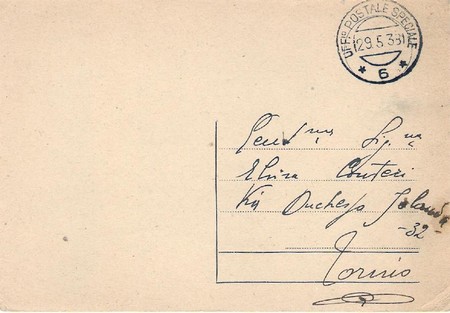 UFFIO POSTALE SPECIALE
29.5.38
6
Gent.ma Sig.na
Elvira Conteri
Via Duchessa Jolanda
-32-
Torino